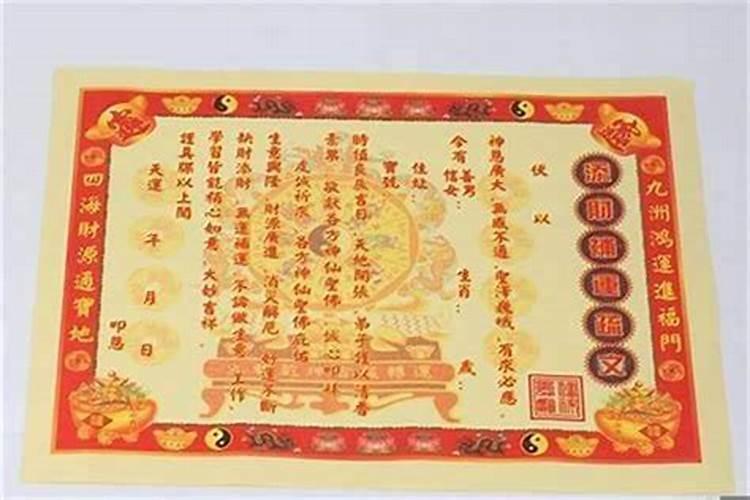 九洲鴻運進福門
添財補運疏文
伏以
神恩廣大 無感不通 聖澤巍峨 有求必應
今有善男信女: 生肖: 歲:
住址:
寶號
時值良辰吉日 天地開張 弟子謹以清香
素果 敬獻各方神仙聖佛 誠心叩拜
虔誠祈求 各方神仙聖佛庇佑
生意興隆 財源廣進 消災解厄 好運不斷
缺財添財 無運補運 不論做生意 工作、
學習皆能稱心如意 大妙吉祥
謹具疏以上聞
天運 年 月 日
叩恩
四海財源通寶地